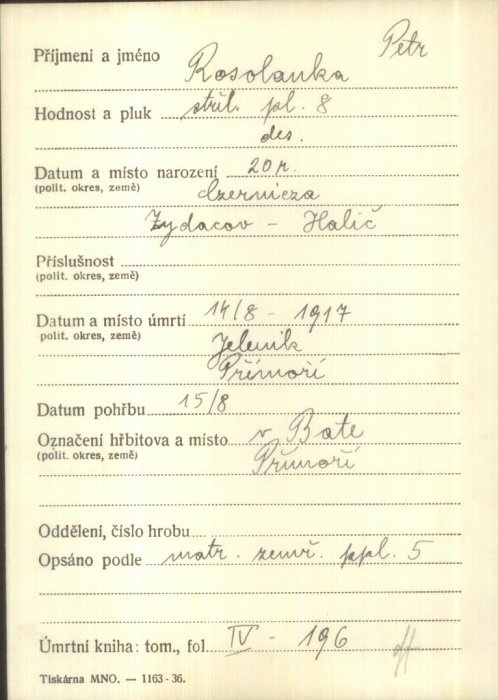 Petr
Příjmení a jméno Rosolanka
Hodnost a pluk střl. pl. 8
des.
Datum a místo narození 20 r.
(polit. okres, země) Czernicza
Zydacov - Halič
Příslušnost
(polit. okres, země)
Datum a místo úmrtí 14/8 - 1917
polit. okres, země) Jelenik
Přímoří
Datum pohřbu 15/8
Označení hřbitova a místo v Bate
(polit. okres, země) Přímoří
Oddělení, číslo hrobu
Opsáno podle matr. zemř. ppl. 5
Úmrtní kniha: tom., fol. IV - 196
Tiskárna MNO. — 1163-36.